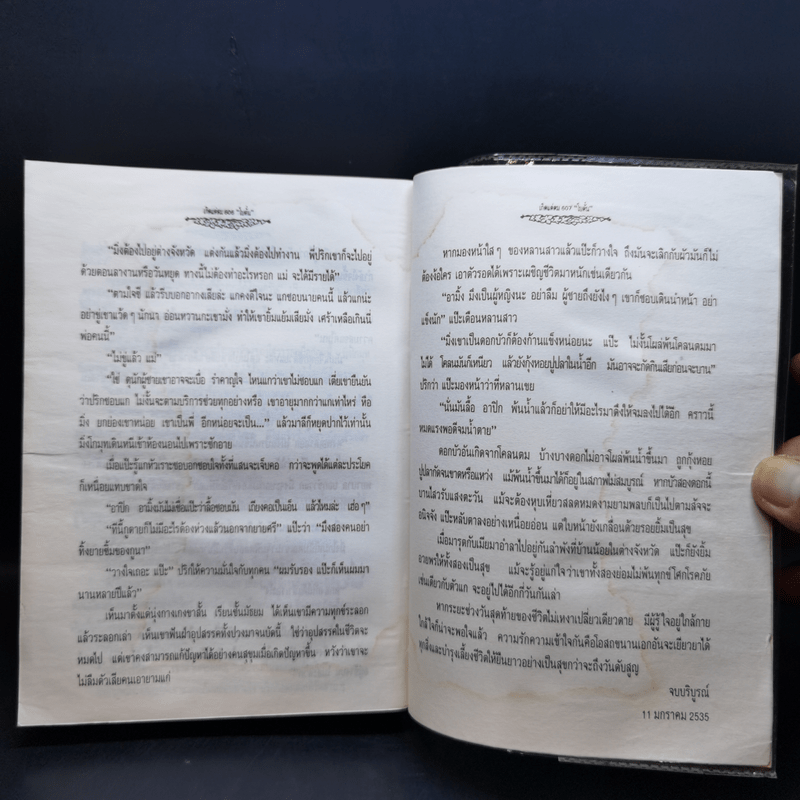 "มึงต้องไปอยู่ต่างจังหวัด แต่งกันแล้วมึงต้องไปทำงาน พี่ปริกเขาก็จะไปอยู่
ด้วยตอนลางานหรือวันหยุด ทางนี้ไม่ต้องทำอะไรหรอก แม่ จะได้มีรายได้"
"ตามใจซี แล้วรีบบอกอากงเสียล่ะ แกคงดีใจนะ แกชอบนายคนนี้ แล้วแกน่ะ
อย่าขู่เขาแว้ดๆ มักนา อ่อนหวานกะเขามั่ง ทำให้เขายิ้มแย้มเสียมั่ง เศร้าเหลือเกินนี่
พ่อคนนี้"
"ไม่ขู่แล้ว แม้"
"ใช่ ดุนักผู้ชายเขาอาจจะเบื่อ รำคาญใจ ไหนแกว่าเขาไม่ชอบแก เตี่ยเขายืนยัน
ว่าปริกชอบแก ไม่งั้นจะตามบริการช่วยทุกอย่างหรือ เขาอายุมากกว่าแกเท่าไหร่ หือ
มึ่ง ยกย่องเขาหน่อย เขาเป็นพี่ อีกหน่อยจะเป็น..." แล้วมาลีก็หยุดปากไว้เท่านั้น
มึ่งโกมุทเดินหนีเข้าห้องนอนไปเพราะชักอาย
เมื่อแป๊ะรู้แกหัวเราะชอบอกชอบใจทั้งที่แสนจะเจ็บคอ กว่าจะพูดได้แต่ละประโยค
ก็เหนื่อยแทบขาดใจ
"อาปิก อามึ้งมันไม่เชื่อแป๊ะว่าลื้อชอบมัน เถียงคอเป็นเอ็น แล้วไหนล่ะ เฮ่อๆ"
"ทีนี้กูตายก็ไม่มีอะไรต้องห่วงแล้วนอกจากยายศรี" แป๊ะว่า "มึงสองคนอย่า
ทิ้งยายขึ้มของกูนา"
"วางใจเถอะ แป๊ะ" ปริกให้ความมั่นใจกับทุกคน "ผมรับรอง แป๊ะก็เห็นผมมา
นานหลายปีแล้ว"
เห็นมาตั้งแต่นุ่งกางเกงขาสั้น เรียนชั้นมัธยม ได้เห็นเขามีความทุกข์ระลอก
แล้วระลอกเล่า เห็นเขาฟันฝ่าอุปสรรคทั้งปวงมาจนบัดนี้ ใช่ว่าอุปสรรคในชีวิตจะ
หมดไป แต่เขาคงสามารถแก้ปัญหาได้อย่างคนสุขุมเมื่อเกิดปัญหาขึ้น หวังว่าเขาจะ
ไม่ลืมตัวเสียคนเอายามแก่
หากมองหน้าใสๆ ของหลานสาวแล้วแป๊ะก็วางใจ ถึงมันจะเลิกกับผัวมันก็ไม่
ต้องง้อใคร เอาตัวรอดได้เพราะเผชิญชีวิตมาหนักเช่นเดียวกัน
"อามึ้ง มึงเป็นผู้หญิงนะ อย่าลืม ผู้ชายถึงยังไงๆ เขาก็ชอบเดินนำหน้า อย่า
แข็งนัก" แป๊ะเตือนหลานสาว
"มึ่งเขาเป็นดอกบัวก็ต้องก้านแข็งหน่อยนะ แป๊ะ ไม่งั้นโผล่พ้นโคลนตมมา
ไม่ได้ โคลนมันก็เหนียว แล้วยังกุ้งหอยปูปลาในน้ำอีก มันอาจจะกัดกินเสียก่อนจะบาน"
ปริกว่า แป๊ะมองหน้าว่าที่หลานเขย
"นั่นมันลื้อ อาปิก พ้นน้ำแล้วก็อย่าให้มีอะไรมาดึงให้จมลงไปได้อีก คราวนี้
หมดแรงพอดีจมน้ำตาย"
ดอกบัวอันเกิดจากโคลนตม บ้างบางดอกไม่อาจโผล่พ้นน้ำขึ้นมา ถูกกุ้งหอย
ปูปลากัดจนขาดหรือแหว่ง แม้พ้นน้ำขึ้นมาได้ก็อยู่ในสภาพไม่สมบูรณ์ หากบัวสองดอกนี้
บานไสวรับแสงตะวัน แม้จะต้องหุบเหี่ยวสลดหมดงามยามพลบก็เป็นไปตามสัจจะ
อนิจจัง แป๊ะหลับตาลงอย่างเหนื่อยอ่อน แต่ใบหน้ายังเกลื่อนด้วยรอยยิ้มเป็นสุข
เมื่อมารุตกับเมียมาอำลาไปอยู่กันลำพังที่บ้านน้อยในต่างจังหวัด แป๊ะก็ยังยิ้ม
อวยพรให้ทั้งสองเป็นสุข แม้จะรู้อยู่แก่ใจว่าเขาทั้งสองย่อมไม่พ้นทุกข์โศกโรคภัย
เช่นเดียวกับตัวแก จะอยู่ไปได้อีกกี่วันกันเล่า
หากระยะช่วงวันสุดท้ายของชีวิตไม่เหงาเปลี่ยวเดียวดาย มีผู้รู้ใจอยู่ใกล้กาย
ใกล้ใจก็น่าจะพอใจแล้ว ความรักความเข้าใจกันคือโอสถขนานเอกอันจะเยียวยาได้
ทุกสิ่งและบำรุงเลี้ยงชีวิตให้ยืนยาวอย่างเป็นสุขกว่าจะถึงวันดับสูญ
จบบริบูรณ์
11 มกราคม 2535